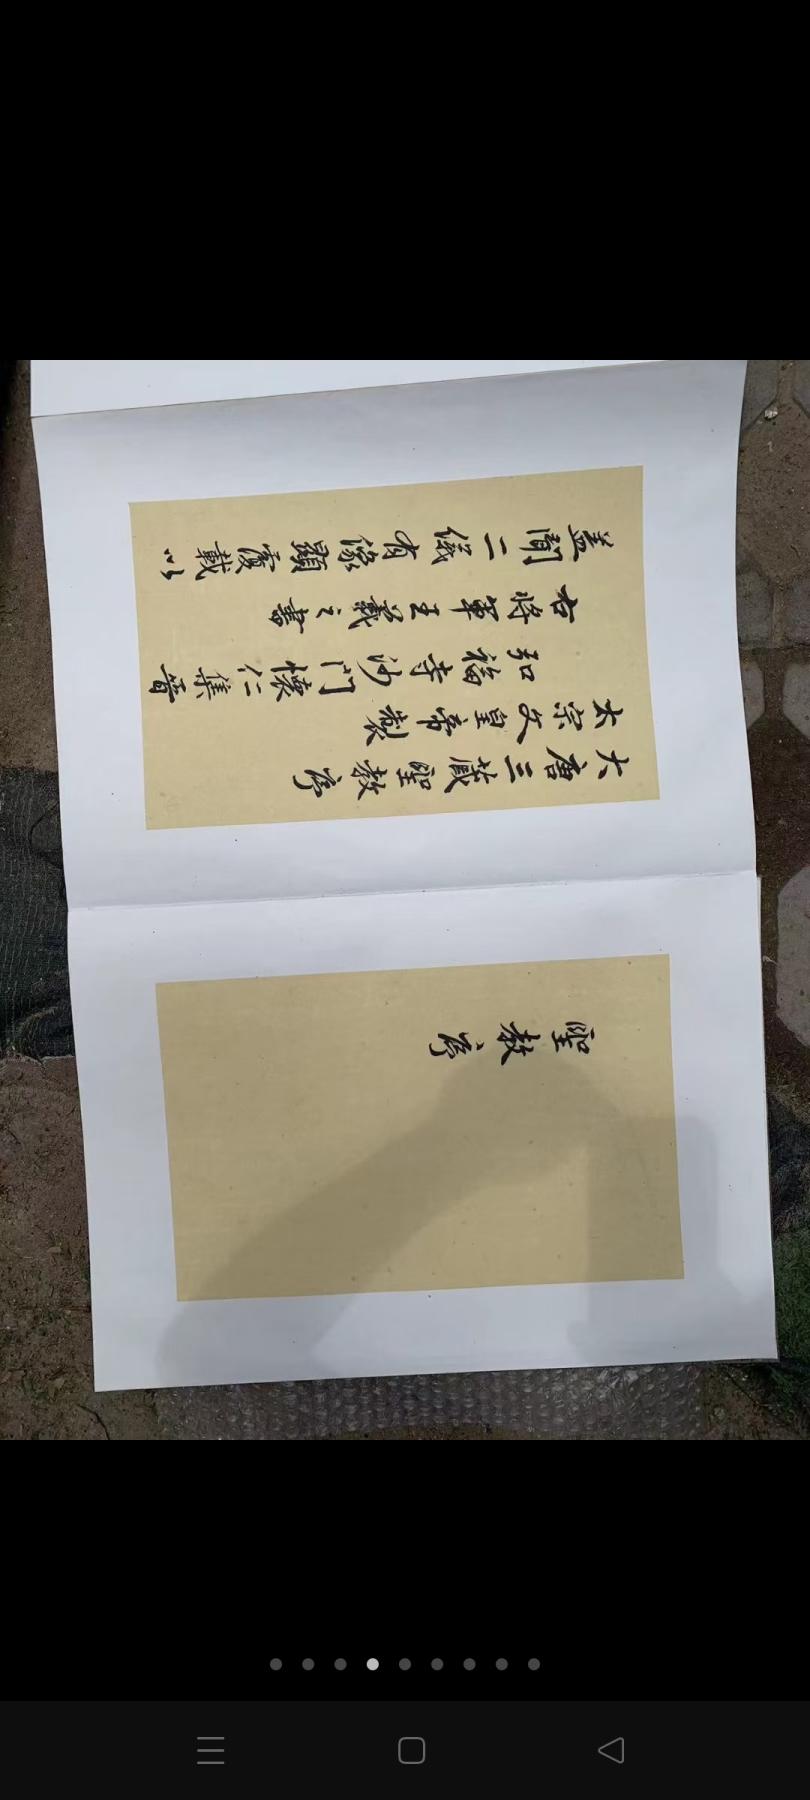 聖教序
大唐三藏聖教序
太宗文皇帝製
弘福寺沙门懷仁集晉
右將軍王羲之書
蓋聞二儀有像顯覆載以